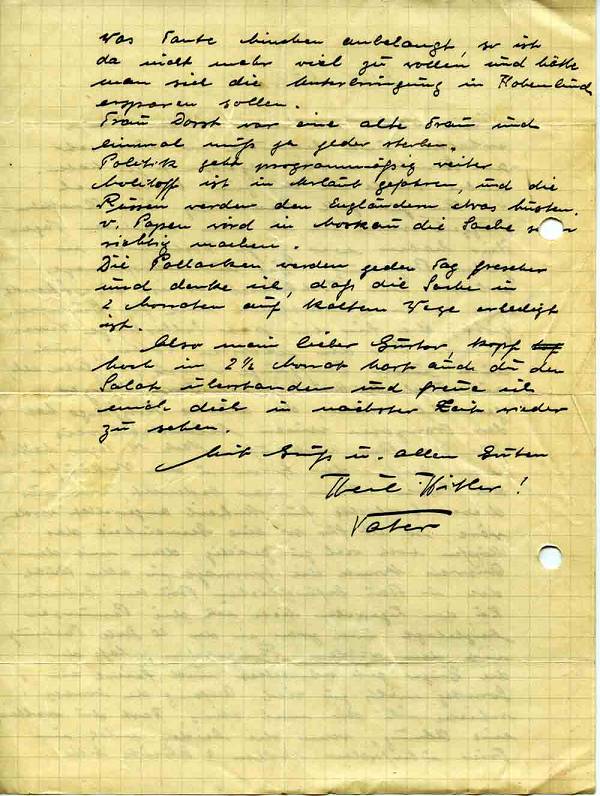 Was Tante Minchen anbelangt, so ist
da nicht mehr viel zu wollen und hätte
man sich die Unterbringung in Hohenlind
ersparen sollen.
Frau Dorst war eine alte Frau und
einmal muß ja jeder sterben.
Politik geht programmäßig weiter
Molitoff ist in Urlaub gefahren, und die
Russen werden den Engländern etwas husten.
v. Papen wird in Moskau die Sache
richtig machen.
Die Pollacken werden jeden Tag frecher
und denke ich, daß die Sache in
2 Monaten auf kaltem Wege erledigt
ist.
Also mein lieber Gustav, Kopf
hoch in 2½ Monat hast auch du den
Salat überstanden und freue ich
mich dich in nächster Zeit wieder
zu sehen.
Mit Gruß u. allem Guten
Heil Hitler!
Vater